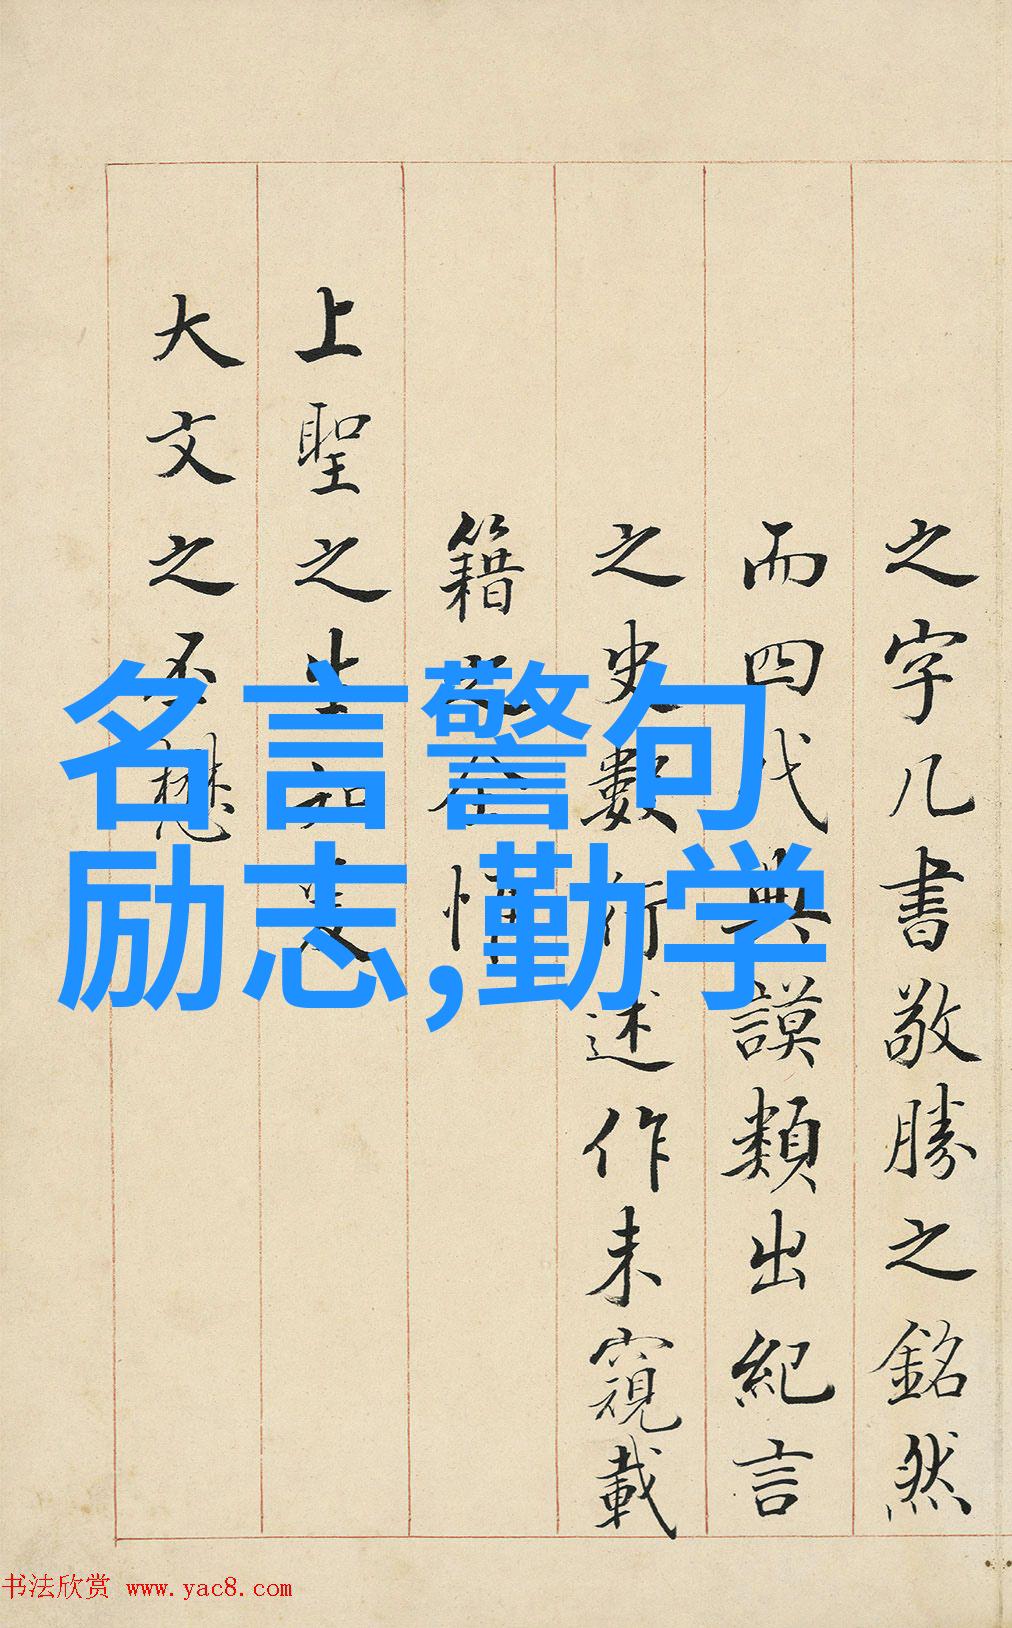 之字几書敬勝之銘然
而四代典謨類出紀言
之史數行述作未窺載
籍之全
上聖之
大文之不懋
名言警句
励志,勤学
书法欣赏 www.yac8.com